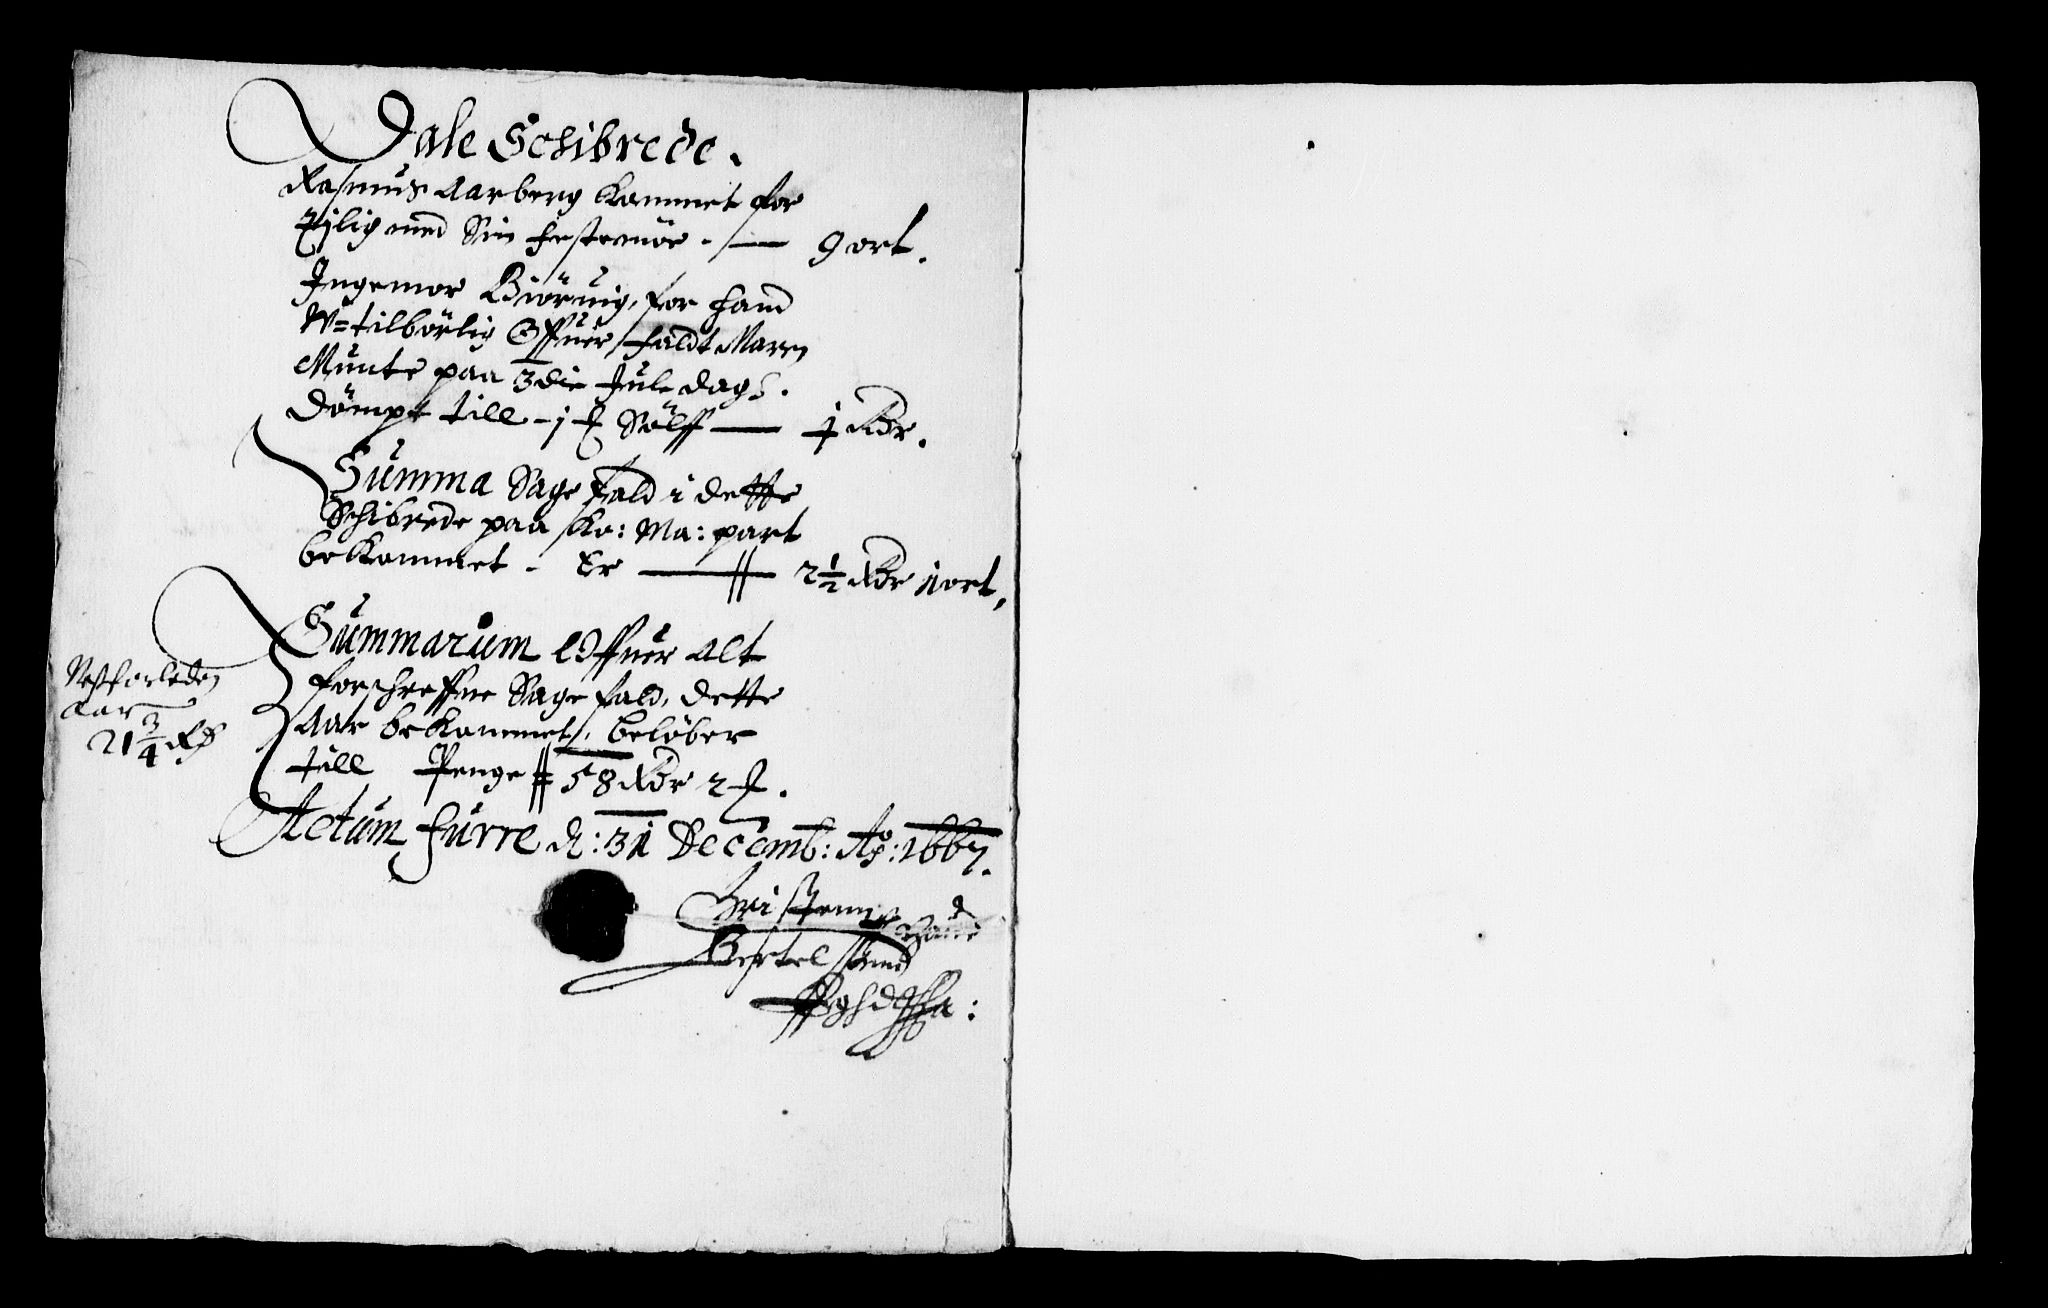 Dale Schibrede.
Rasmus Aarberg kommet for
tijlig med Sin festemøe. — 9 ort.
Ingemor Biörnig, for hand
V=tilbörlig Offuerfaldt Maren
Munte paa 3die Jule dags.
Dömpt till - j ₰ Sölff — 1 Rdr.
Summa Sage fald i dette
Schibrede paa Ko: Ma: part
bekommet - Er — 2½ Rdr 1 ort,
Summarum Offuer alt
forschreffne Sage fald, dette
Aar bekommet, beløber
till Penge 58 Rdr 2 ₰.
Nestforleden
Aar
21¾ Rd
Actum Furre d: 31 Decemb: Ao: 1667.
Christenn
Bertelssønn